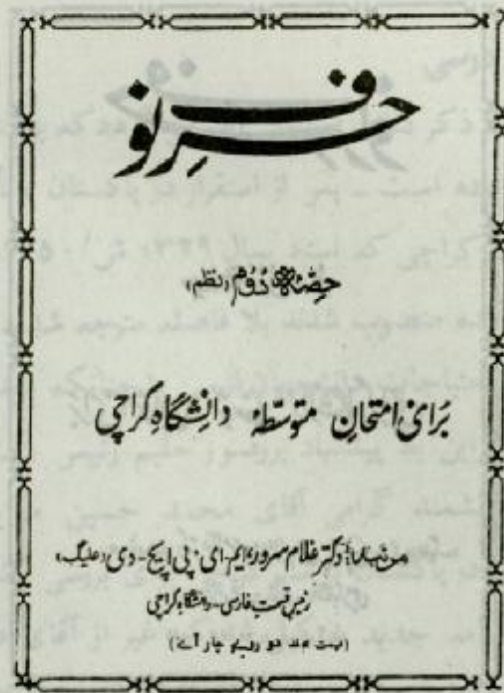 حرفِ نو
حصۂ دوم (نظم)
برای امتحانِ متوسطۂ دانشگاهِ کراچی
دکتر غلام سرور، ایم-ای، پی ایچ-دی (علیگ)
رئیس قسمت فارسی - دانشگاه کراچی
(قیمت دو روپیہ چار آنے)